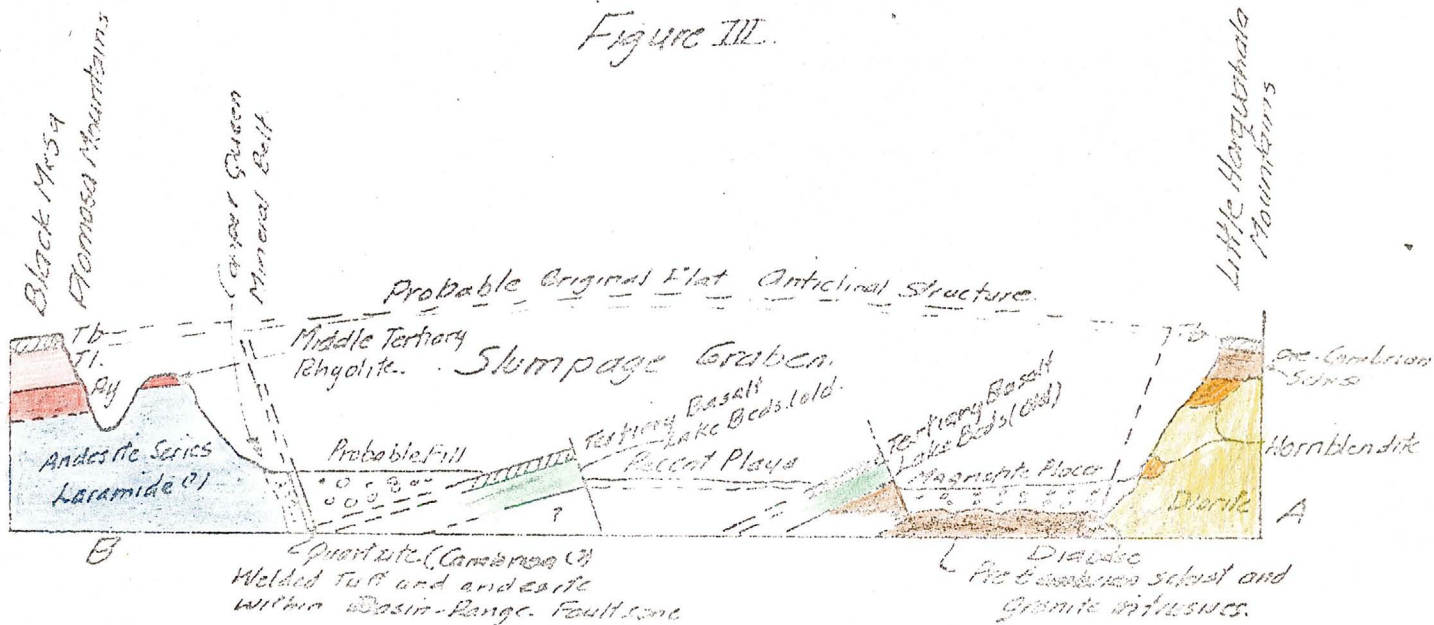 Figure III.
Black Mesa
Plomosa Mountains
Copper Queen
Mineral Belt
Little Harquahala
Mountains
Probable Original Flat Anticlinal Structure.
Tb
Tl.
Middle Tertiary
Rhyolite.
Slumpage Graben.
Tb
Pre-Cambrian
Schist
Hornblendite
Andesite Series
Laramide (?)
Probable Fill
Tertiary Basalt
Lake Beds (old)
Recent Playa
Tertiary Basalt
Lake Beds (old)
Magnetite Placer
?
Diorite
B
A
Quartzite (Cambrian (?)
Welded Tuff and andesite
within Basin-Range Fault zone
Diabase
Pre Cambrian schist and
granite intrusives.